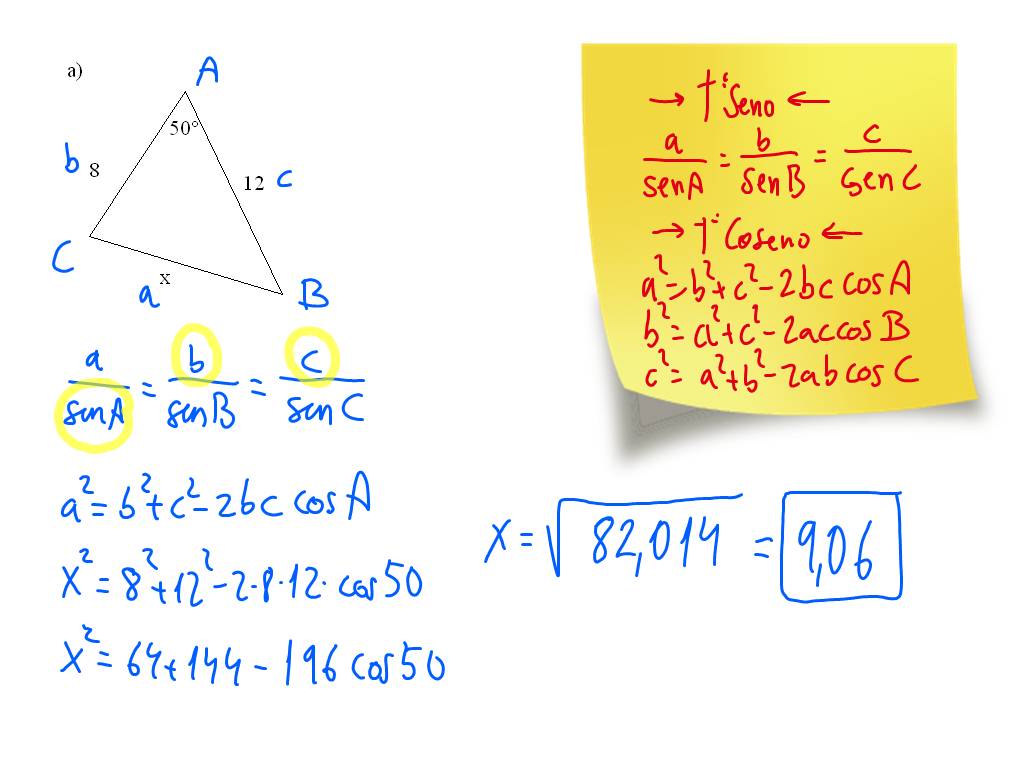 a)
A
50°
b 8
12 c
C
x
a
B
a/senA = b/senB = c/senC
a² = b² + c² - 2bc cos A
x² = 8² + 12² - 2·8·12· cos 50
x² = 64 + 144 - 196 cos 50
→ Tª Seno ←
a/senA = b/senB = c/senC
→ Tª Coseno ←
a² = b² + c² - 2bc cos A
b² = a² + c² - 2ac cos B
c² = a² + b² - 2ab cos C
x = √82,014 = 9,06